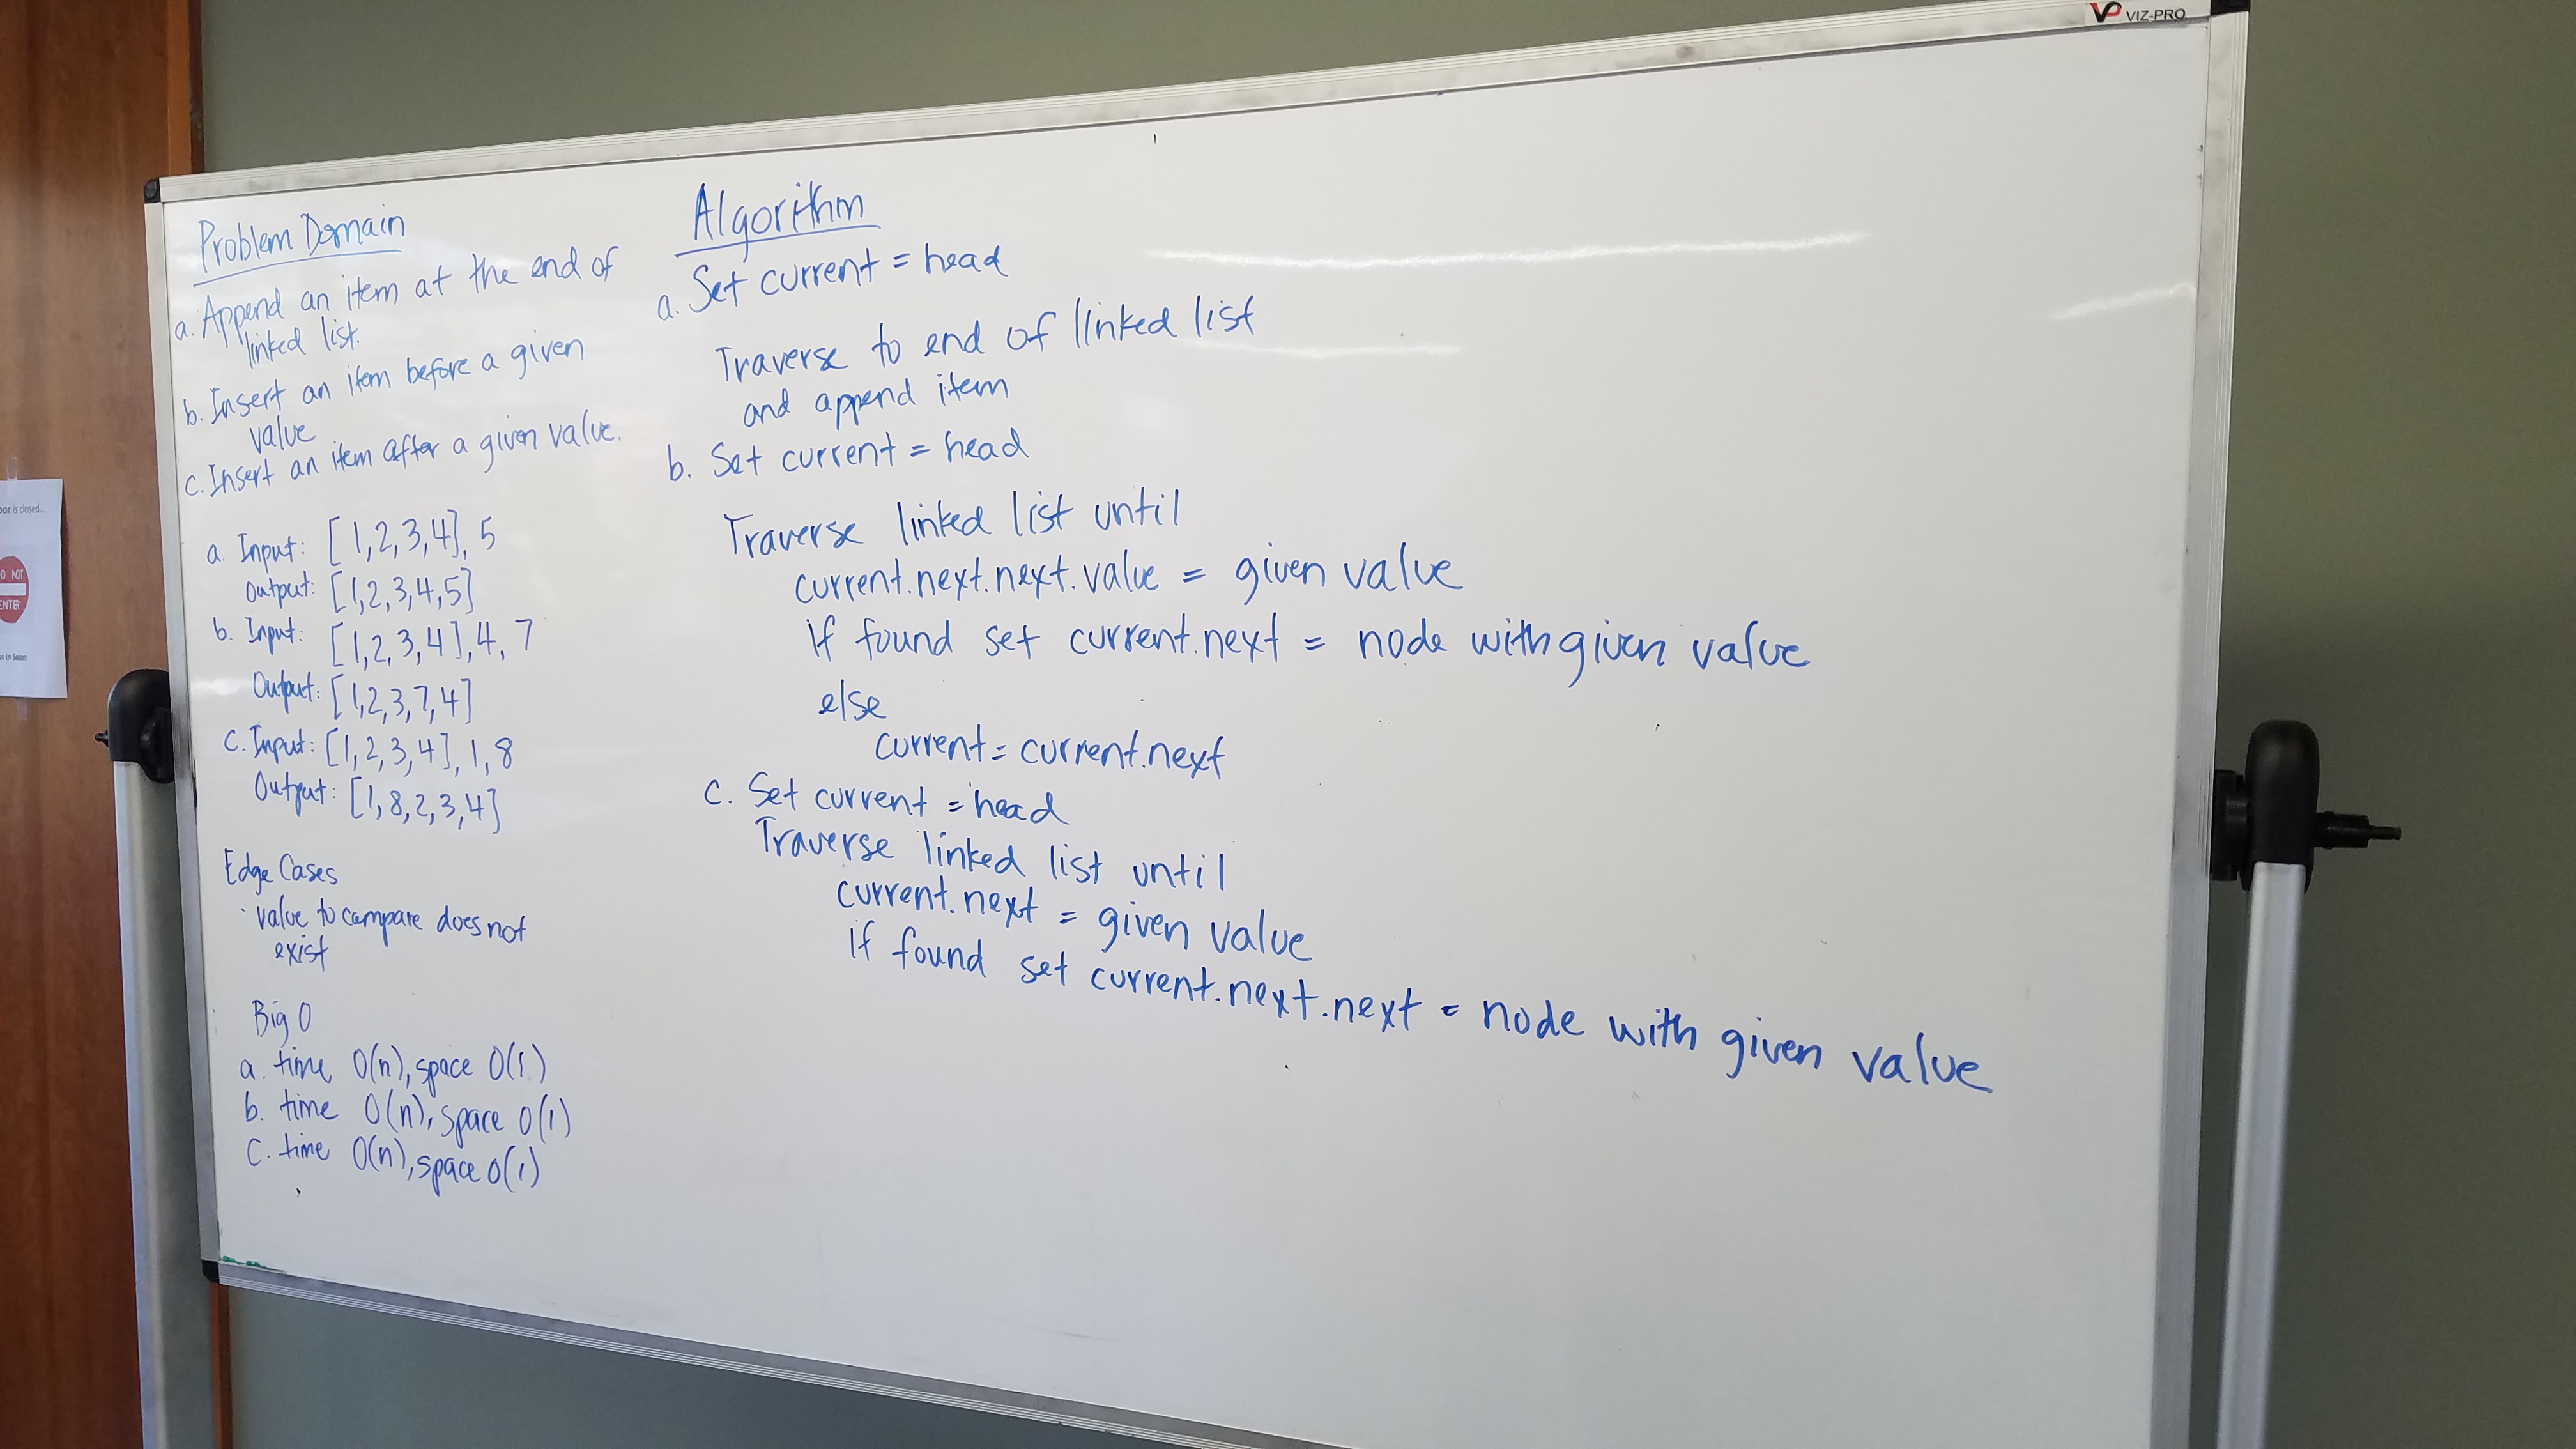 VP VIZ-PRO
Problem Domain
a. Append an item at the end of
linked list.
b. Insert an item before a given
value
c. Insert an item after a given value.
a. Input: [1,2,3,4], 5
Output: [1,2,3,4,5]
b. Input: [1,2,3,4], 4, 7
Output: [1,2,3,7,4]
C. Input: [1,2,3,4], 1, 8
Output: [1,8,2,3,4]
Edge Cases
· value to compare does not
exist
Big O
a. time O(n), space O(1)
b. time O(n), space O(1)
C. time O(n), space O(1)
Algorithm
a. Set current = head
Traverse to end of linked list
and append item
b. Set current = head
Traverse linked list until
current.next.next.value = given value
If found set current.next = node with given value
else
current = current.next
C. Set current = head
Traverse linked list until
current.next = given value
If found set current.next.next = node with given value
oor is closed...
O NOT
ENTER